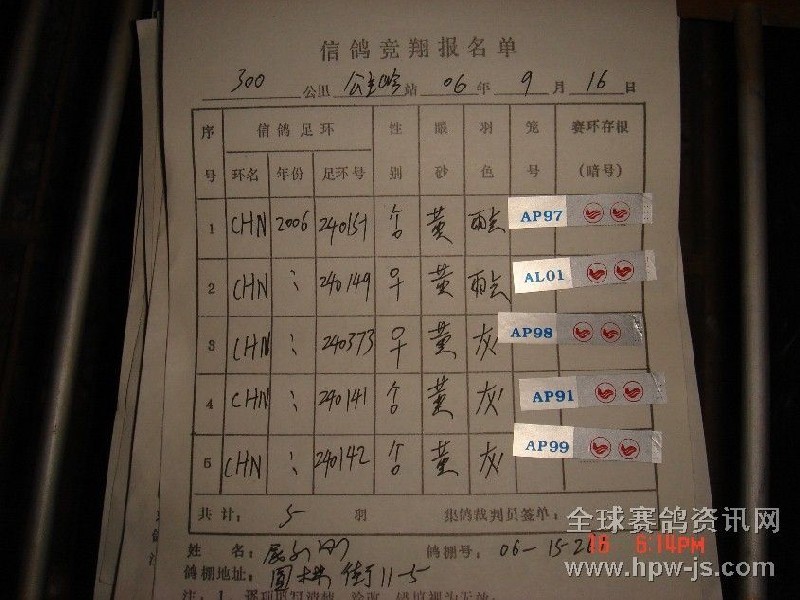 信鸽竞翔报名单
300 公里 公主岭 站 06 年 9 月 16 日
序号 信鸽足环 性别 眼砂 羽色 笼号 赛环存根(暗号)
环名 年份 足环号
1 CHN 2006 240151 黄 AP97
2 CHN 240149 黄 AL01
3 CHN 240373 黄 灰 AP98
4 CHN 240141 黄 灰 AP91
5 CHN 240142 黄 灰 AP99
共计: 5 羽 集鸽裁判员签单:
姓名: 鸽棚号: 06-15-2
鸽棚地址: 园林街11-5
注:1、
6:14PM
全球赛鸽资讯网
www.hpw-js.com